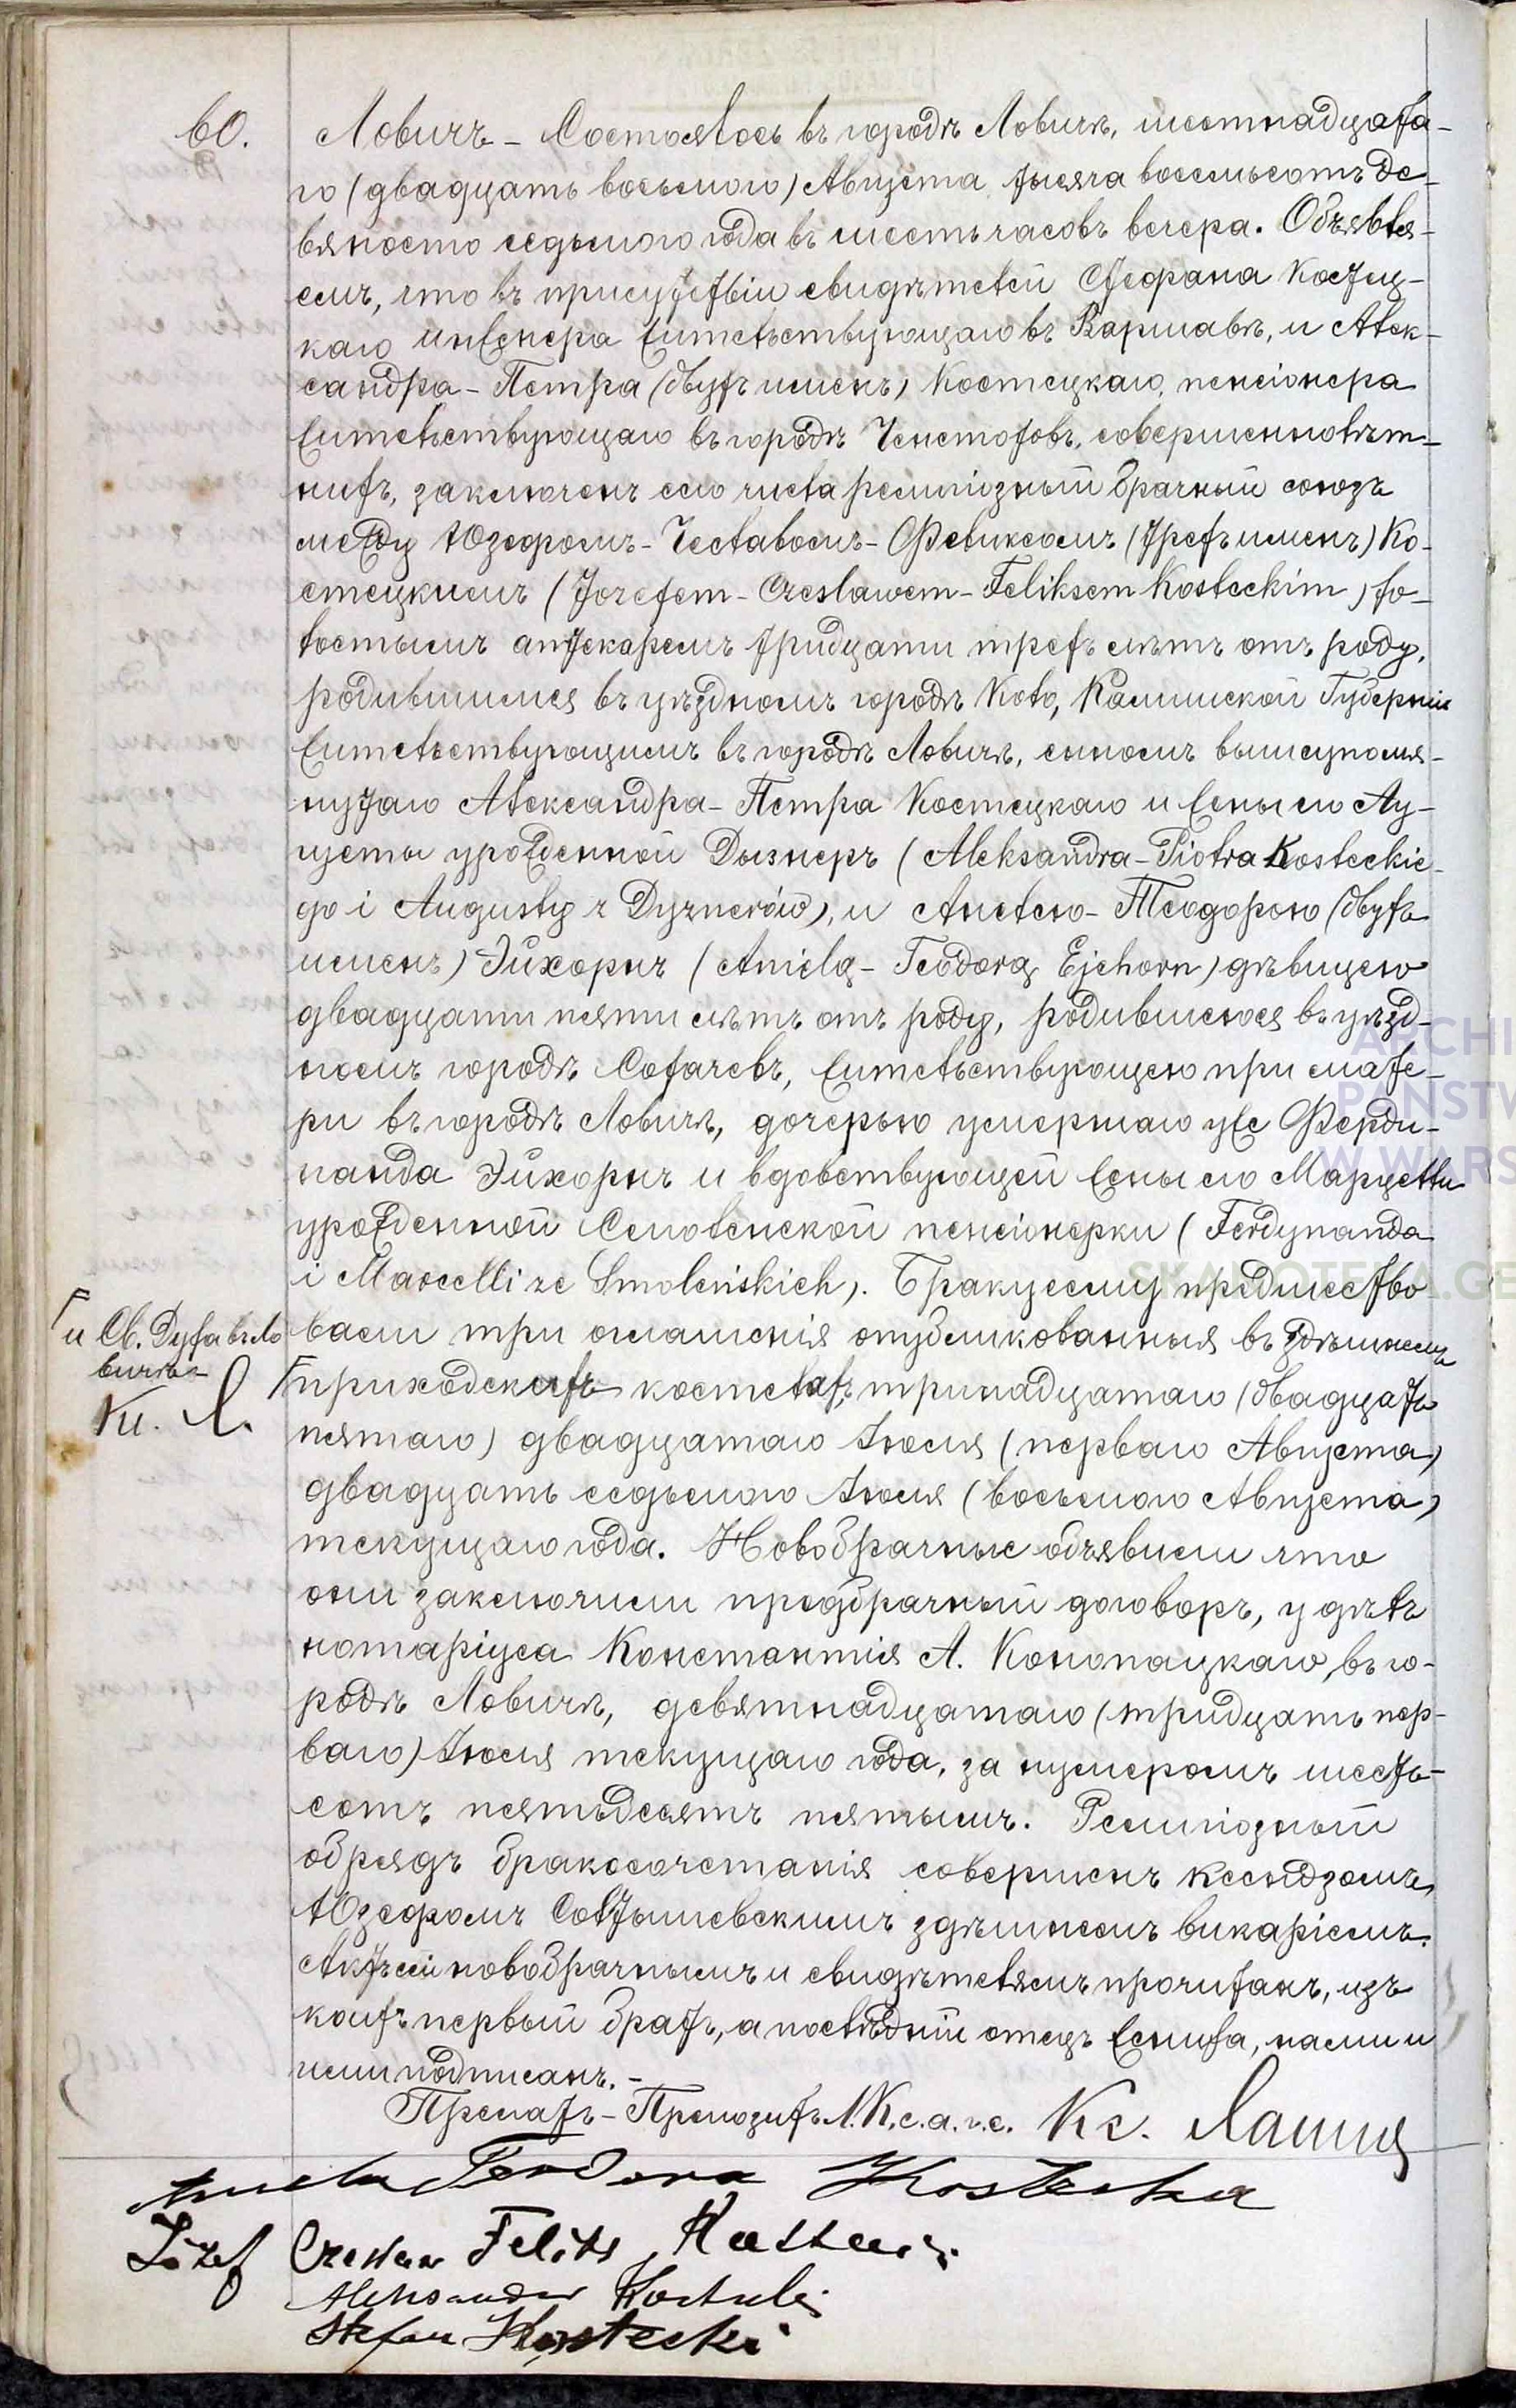 60.
Ловичъ – Состоялось въ городѣ Ловичѣ, шестнадцата-
го (двадцать восьмого) Августа тысяча восемьсотъ де-
вяносто седьмого года въ шесть часовъ вечера. Объявля-
емъ, что въ присутствіи свидѣтелей Стефана Костец-
каго инженера жительствующаго въ Варшавѣ, и Алек-
сандра-Петра (двухъ именъ) Костецкаго, пенсіонера
жительствующаго въ городѣ Ченстоховѣ, совершеннолѣт-
нихъ, заключенъ сего числа религіозный брачный союзъ
между Юзефомъ-Чеславомъ-Феликсомъ (трехъ именъ) Ко-
стецкимъ (Józefem-Czesławem-Feliksem Kosteckim) хо-
лостымъ аптекаремъ тридцати трехъ лѣтъ отъ роду,
родившимся въ уѣздномъ городѣ Коло, Калишской Губерніи
жительствующимъ въ городѣ Ловичѣ, сыномъ вышеупомя-
нутаго Александра-Петра Костецкаго и жены его Ау-
густы урожденной Дызнеръ (Aleksandra-Piotra Kosteckie-
go i Augusty z Dyznerów), и Анелею-Теодорою (двухъ
именъ) Эйхорнъ (Anielą-Teodorą Ejchorn) дѣвицею
двадцати пяти лѣтъ отъ роду, родившеюся въ уѣзд-
номъ городѣ Сохачевѣ, жительствующею при мате-
ри въ городѣ Ловичѣ, дочерью умершаго уже Ферди-
нанда Эйхорнъ и вдовствующей жены его Марцелли
урожденной Смоленской пенсіонерки (Ferdynanda
i Marcelli ze Smoleńskich). Браку сему предшество
вали три оглашенія опубликованныя въ здѣшнемъ
Г и Св. Духа въ Ло
вичѣ –
Кс. Л.
Г приходскихъ костелахъ, тринадцатаго (двадцать
пятаго) двадцатаго Іюля (перваго Августа)
двадцать седьмого Іюля (восьмого Августа)
текущаго года. Новобрачные объявили что
они заключили предбрачный договоръ, у дѣлъ
нотаріуса Константія А. Конопацкаго, въ го-
родѣ Ловичѣ, девятнадцатаго (тридцать пер-
ваго) Іюля текущаго года, за нумеромъ шесть-
сотъ пятьдесятъ пятымъ. Религіозный
обрядъ бракосочетанія совершенъ ксендзомъ
Юзефомъ Солтышевскимъ здѣшнемъ викаріемъ.
Актъ сей новобрачнымъ и свидѣтелямъ прочитанъ, изъ
коихъ первый братъ, а послѣдній отецъ жениха, нами и
ими подписанъ. –
Прелатъ-Препозитъ Л. К. с. а. г. с. Кс.
Aniela Teodora Kostecka
Józef Czesław Feliks Kostecki
Aleksander Kostecki
Stefan Kostecki
ARCHI
PAŃSTW
W WARS
SKANOTEKA.GE